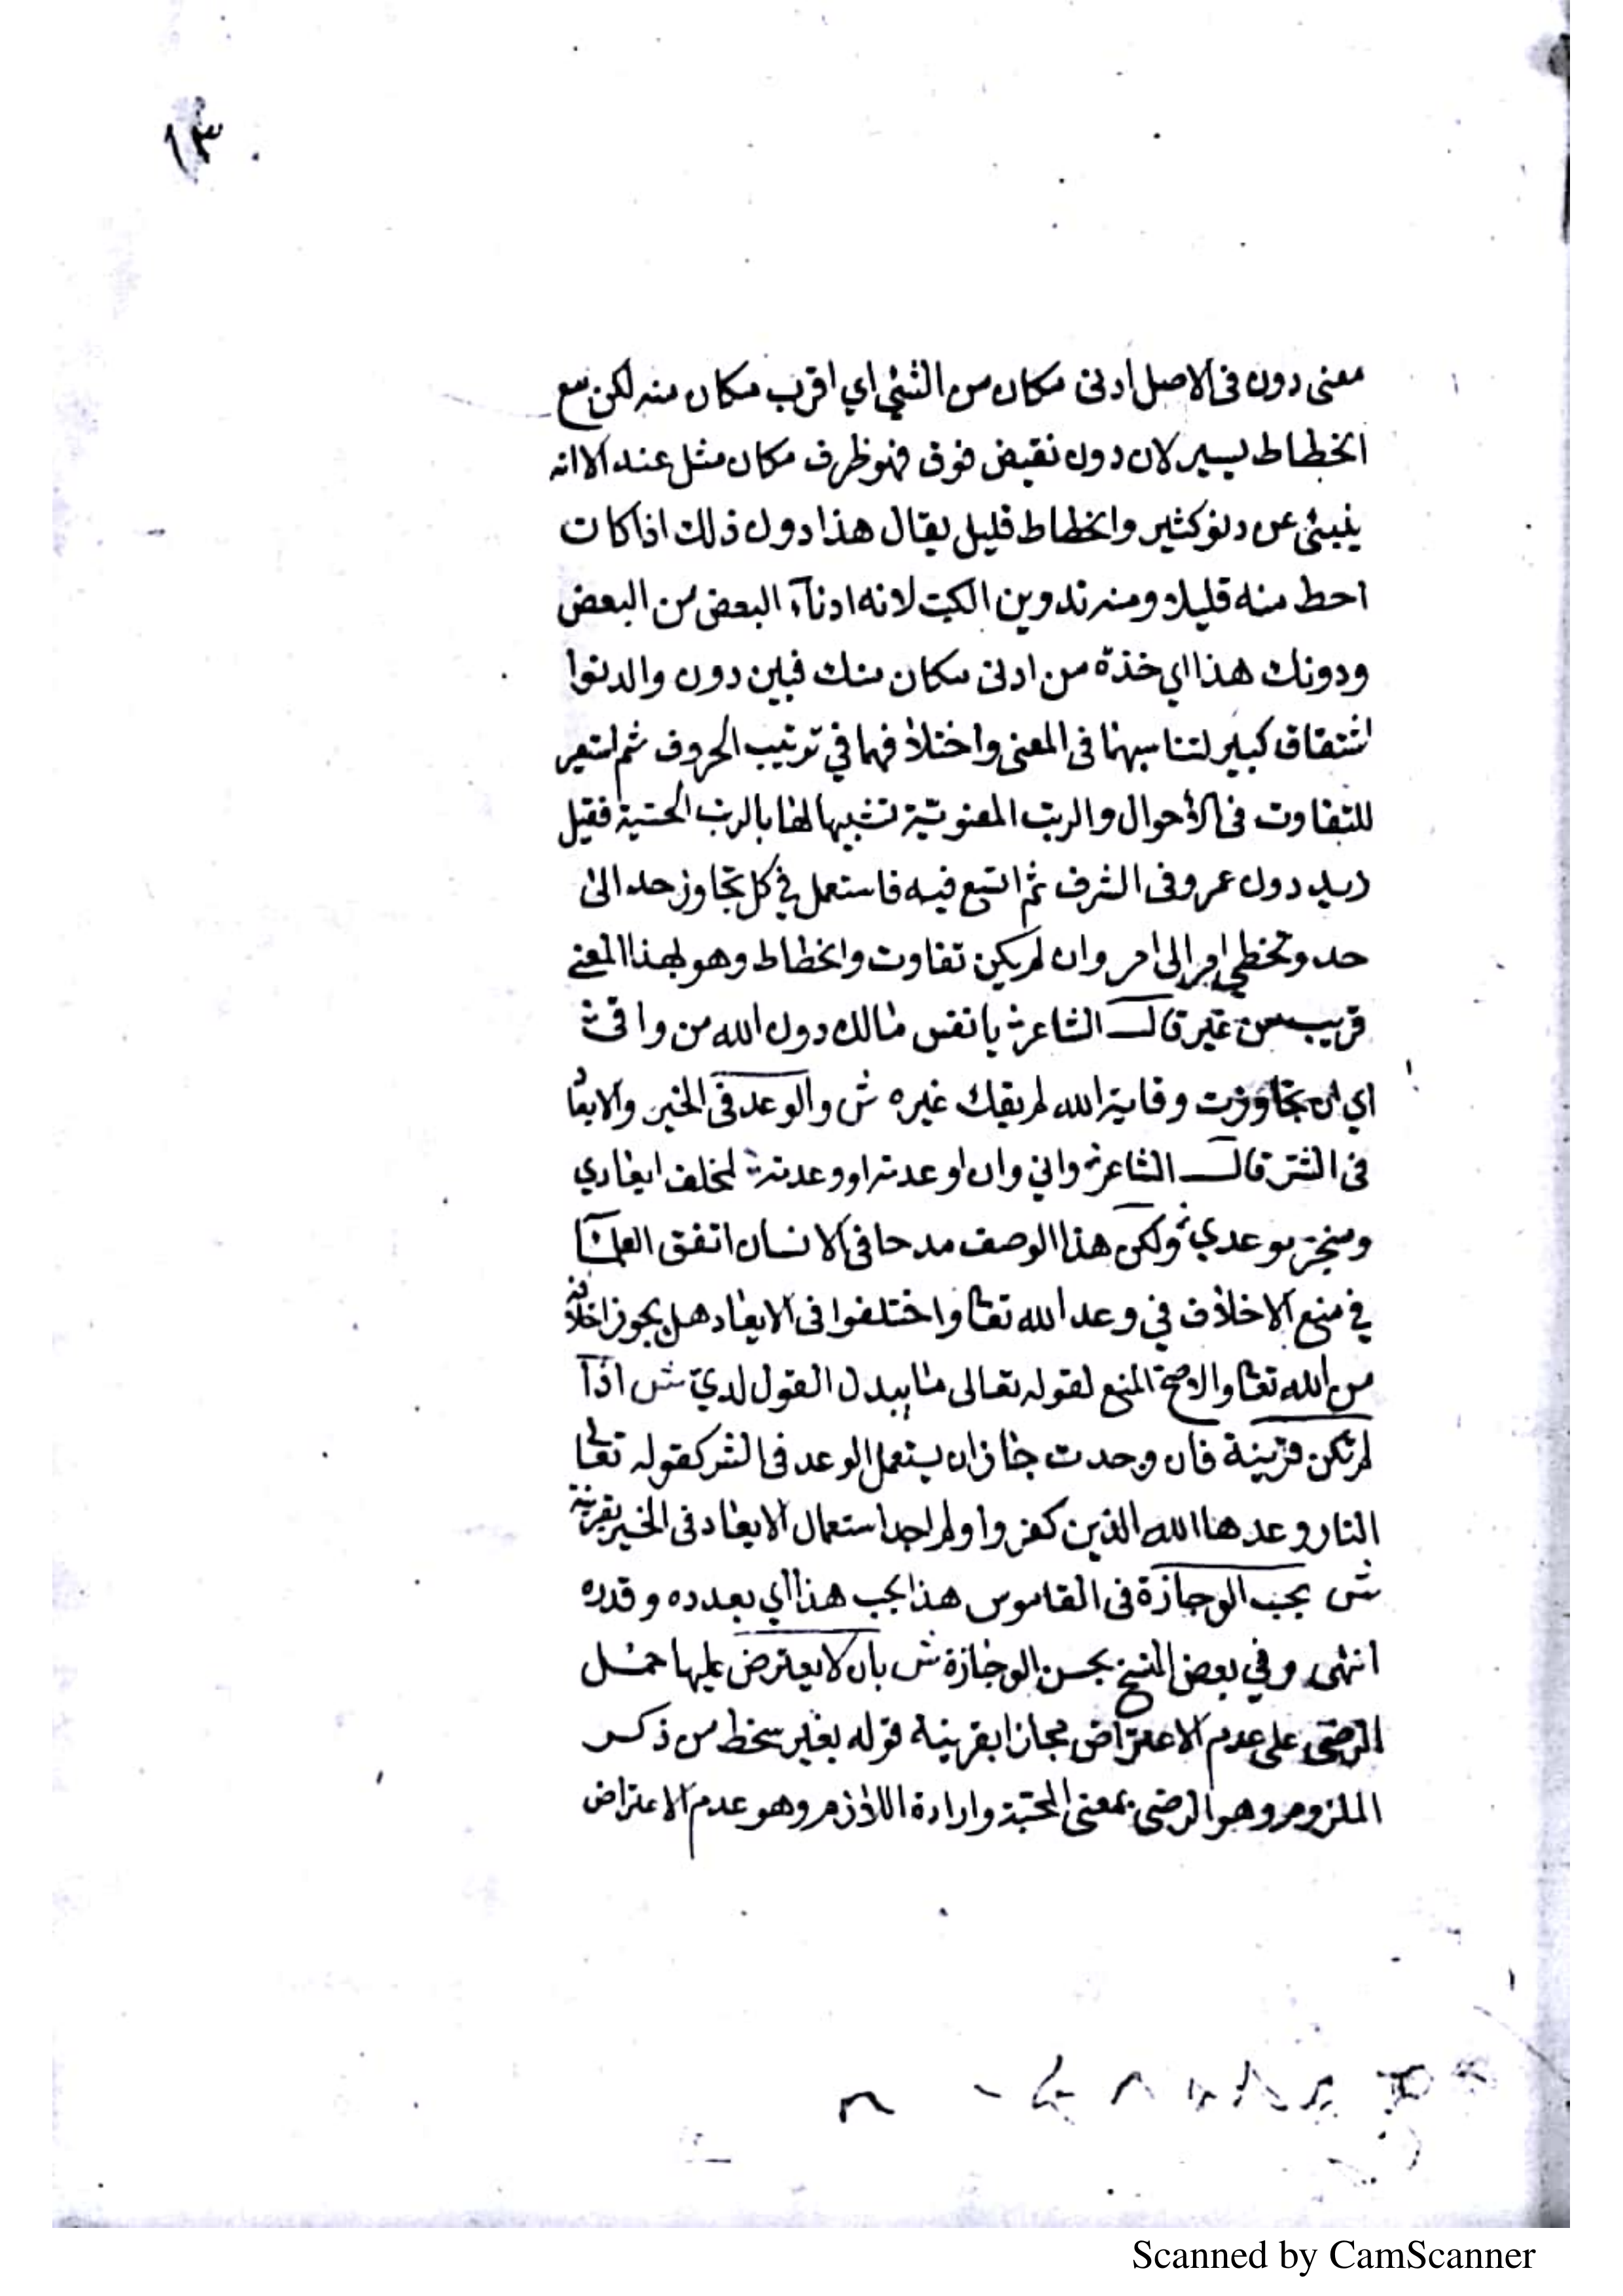 ١٣
معنى دون فى الاصل ادنى مكان من الشيئ اي اقرب مكان منه لكن مع
انحطاط يسير لان دون نقيض فوق فهو ظرف مكان مثل عند الا انه
ينبئ عن دنو كثير وانحطاط قليل يقال هذا دون ذلك اذا كان
احط منه قليلا ومنه تدوين الكتب لانه ادناء البعض من البعض
ودونك هذا اي خذه من ادنى مكان منك فبين دون والدنوا
اشتقاق كبير لتناسبهما فى المعنى واختلافهما في ترتيب الحروف ثم استعير
للتفاوت فى الأحوال والرتب المعنوية تشبيها لها بالرتب الحسية فقيل
زيد دون عمرو فى الشرف ثم اتسع فيه فاستعمل في كل تجاوز حد الى
حد وتخطي امر الى امر وان لم يكن تفاوت وانحطاط وهو بهذا المعنى
قريب من غير قال الشاعر يا نفس مالك دون الله من واقى
اي ان تجاوزت وقاية الله لم يقك غيره ش والوعد فى الخير والايعاد
فى الشر قال الشاعر واني وان اوعدته او وعدته لمخلف ايعادي
ومنجز موعدي ولكن هذا الوصف مدحا فى الانسان اتفق العلماء
في منع الاخلاف في وعد الله تعا واختلفوا فى الايعاد هل يجوز اخلافه
من الله تعا والاصح المنع لقوله تعالى ما يبدل القول لدي ش اذا
لم تكن قرينة فان وجدت جاز ان يستعمل الوعد فى الشر كقوله تعالى
النار وعدها الله الذين كفروا ولم اجد استعمال الايعاد فى الخير بقرينة
ش بحب الوجازة فى القاموس هذا بحب هذا اي بعدده وقدره
انتهى وفي بعض النسخ بحسن الوجازة ش بان لا يعترض عليها حمل
الرضى على عدم الاعتراض مجازا بقرينة قوله بغير سخط من ذكر
الملزوم وهو الرضى بمعنى المحبة وارادة اللازم وهو عدم الاعتراض
Scanned by CamScanner